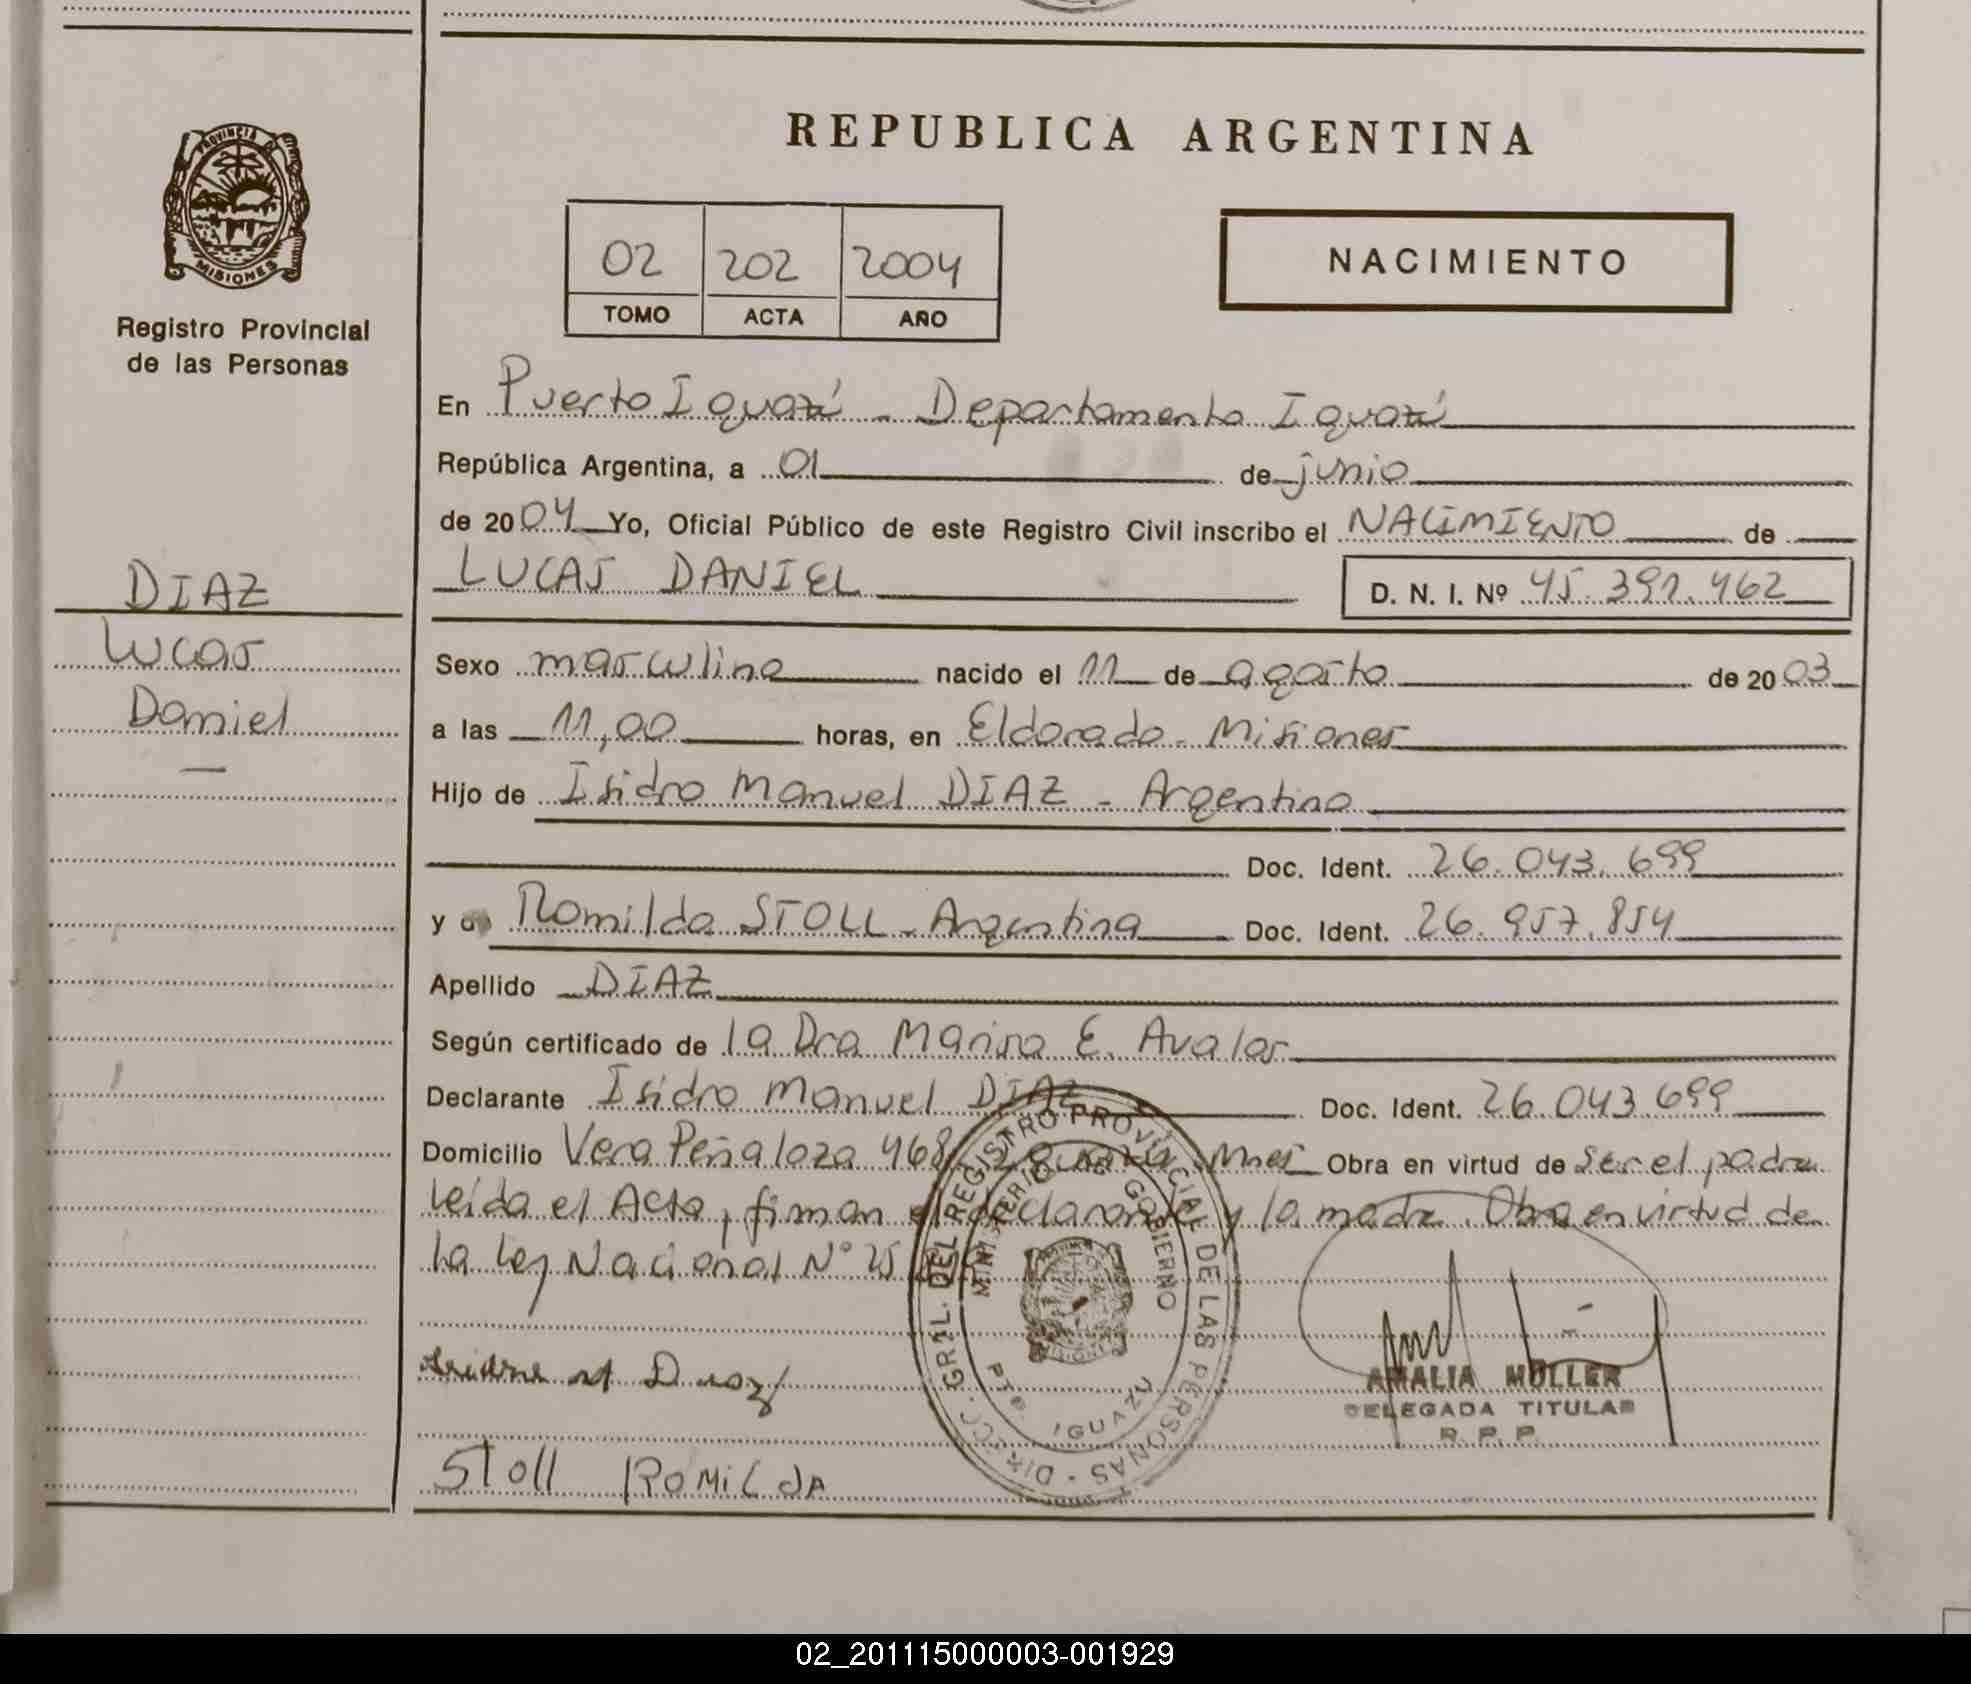 REPUBLICA ARGENTINA
PROVINCIA DE
MISIONES
Registro Provincial
de las Personas
02 202 2004
TOMO ACTA AÑO
NACIMIENTO
En Puerto Iguazú - Departamento Iguazú
República Argentina, a 01 de junio
de 2004 Yo, Oficial Público de este Registro Civil inscribo el NACIMIENTO de
LUCAS DANIEL D. N. I. Nº 45.391.462
DIAZ
Lucas
Daniel
Sexo masculino nacido el 11 de agosto de 2003
a las 11,00 horas, en Eldorado - Misiones
Hijo de Isidro Manuel DIAZ - Argentino
Doc. Ident. 26.043.699
y de Romilda STOLL - Argentina Doc. Ident. 26.957.854
Apellido DIAZ
Según certificado de la Dra Marisa E. Avalos
Declarante Isidro Manuel DIAZ Doc. Ident. 26.043.699
Domicilio Vera Peñaloza 468 Iguazú Mnes Obra en virtud de ser el padre
Leída el Acta, firman el declarante y la madre. Obra en virtud de
La Ley Nacional Nº 25
DIRECC. GRAL. DEL REGISTRO PROVINCIAL DE LAS PERSONAS
MINISTERIO DE GOBIERNO
PTO. IGUAZU
MISIONES
M Diaz
AMALIA MULLER
DELEGADA TITULAR
R. P. P.
Stoll ROMILdA
02_201115000003-001929